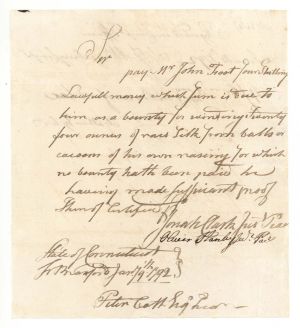 Sir
pay Mr John Frost four Shilling
Lawfull money which Sum is due to
him as a bounty for winding twenty
four ounces of raw Silk from balls or
cacoons of his own raising for which
no bounty hath been paid he
having made sufficient proof
Jonah Clark Jus.t Peace
Oliver Stanley Jus.t Pace
State of Connecticut
Wallingford Jan.y 7th 1792
Peter Colt Esq.r